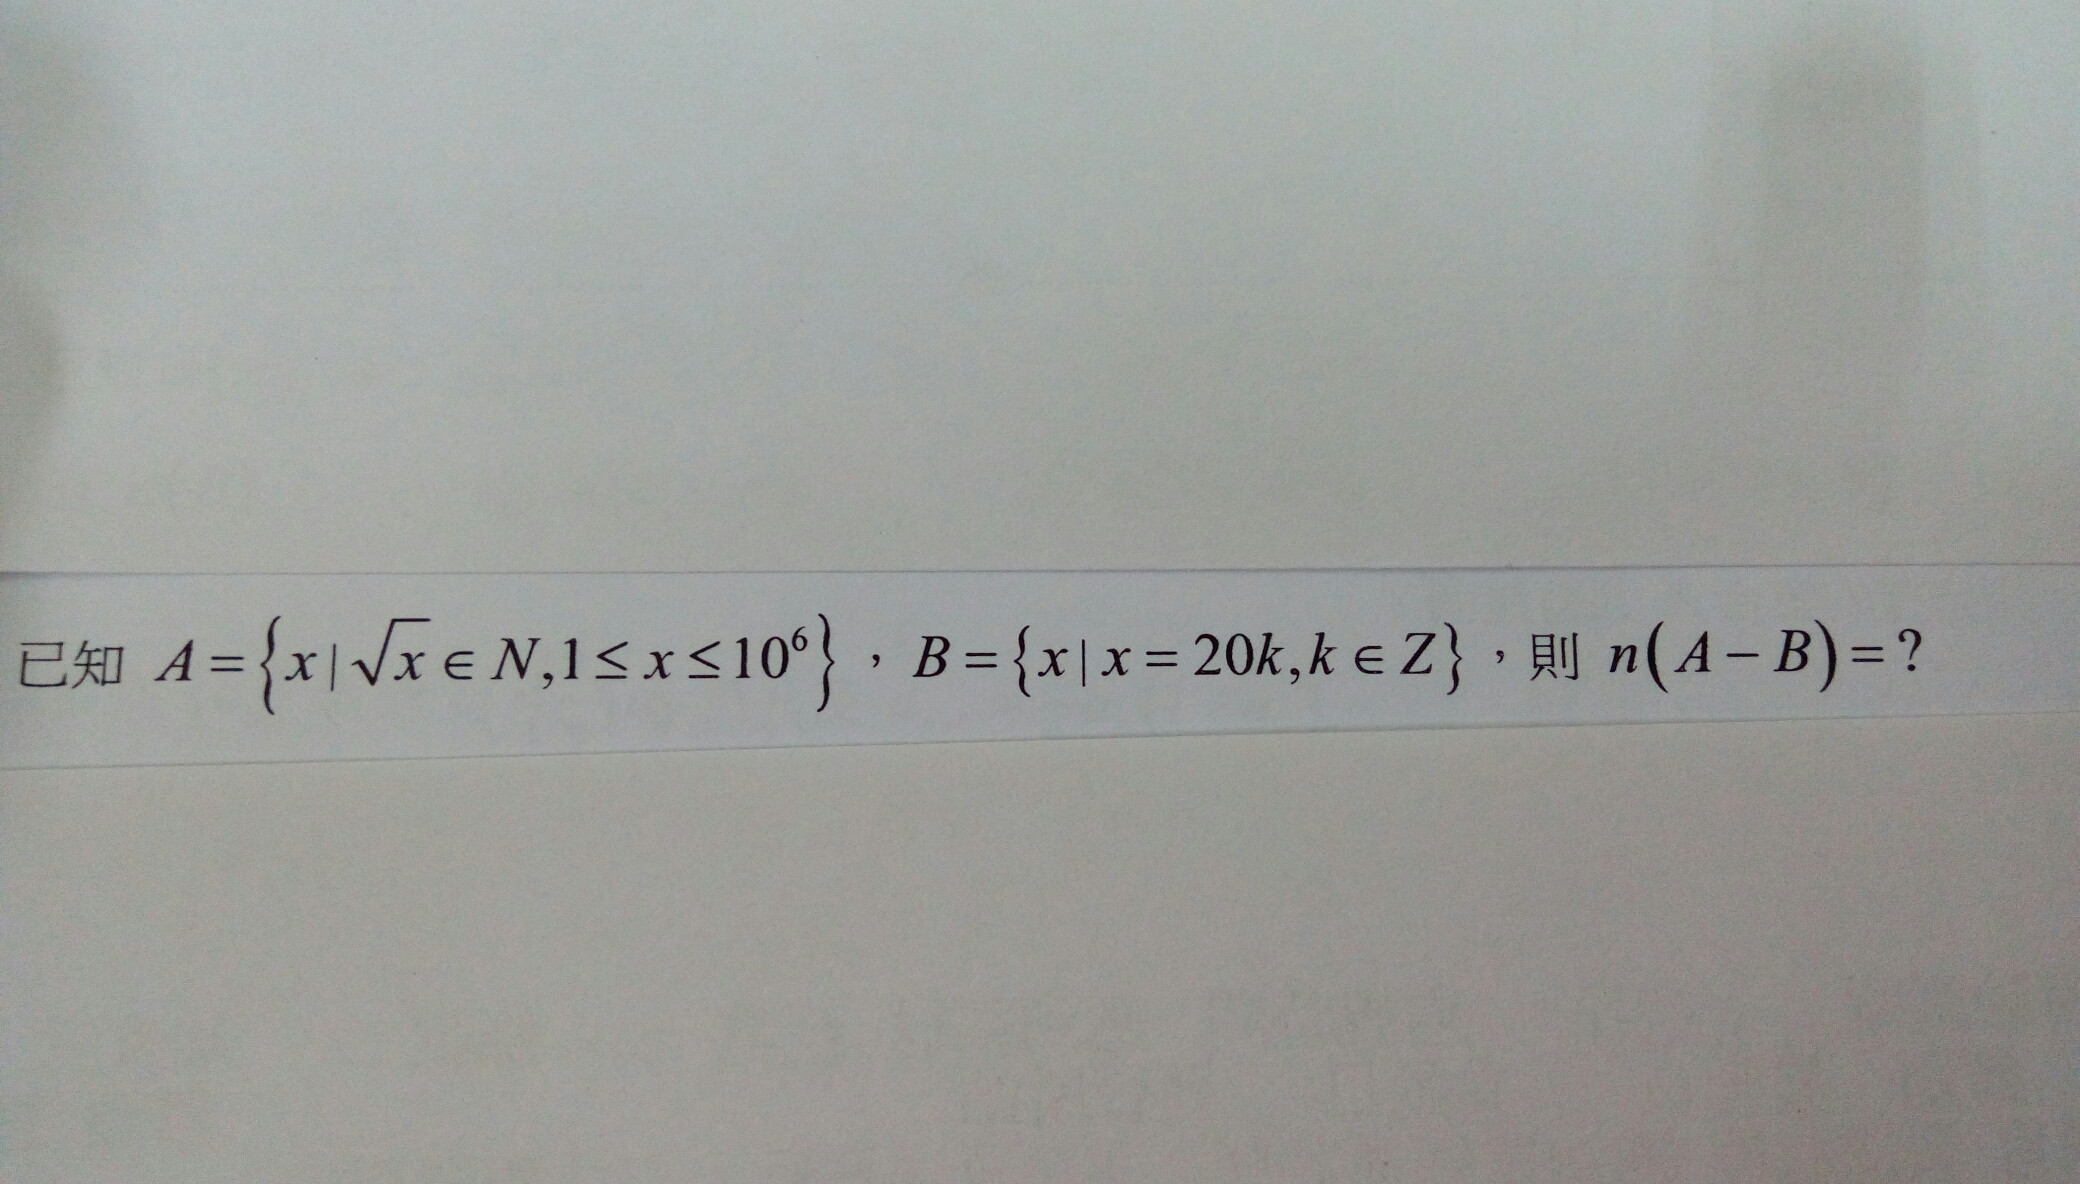 已知 A={x|√x∈N,1≤x≤10⁶}，B={x|x=20k,k∈Z}，則 n(A−B)=?